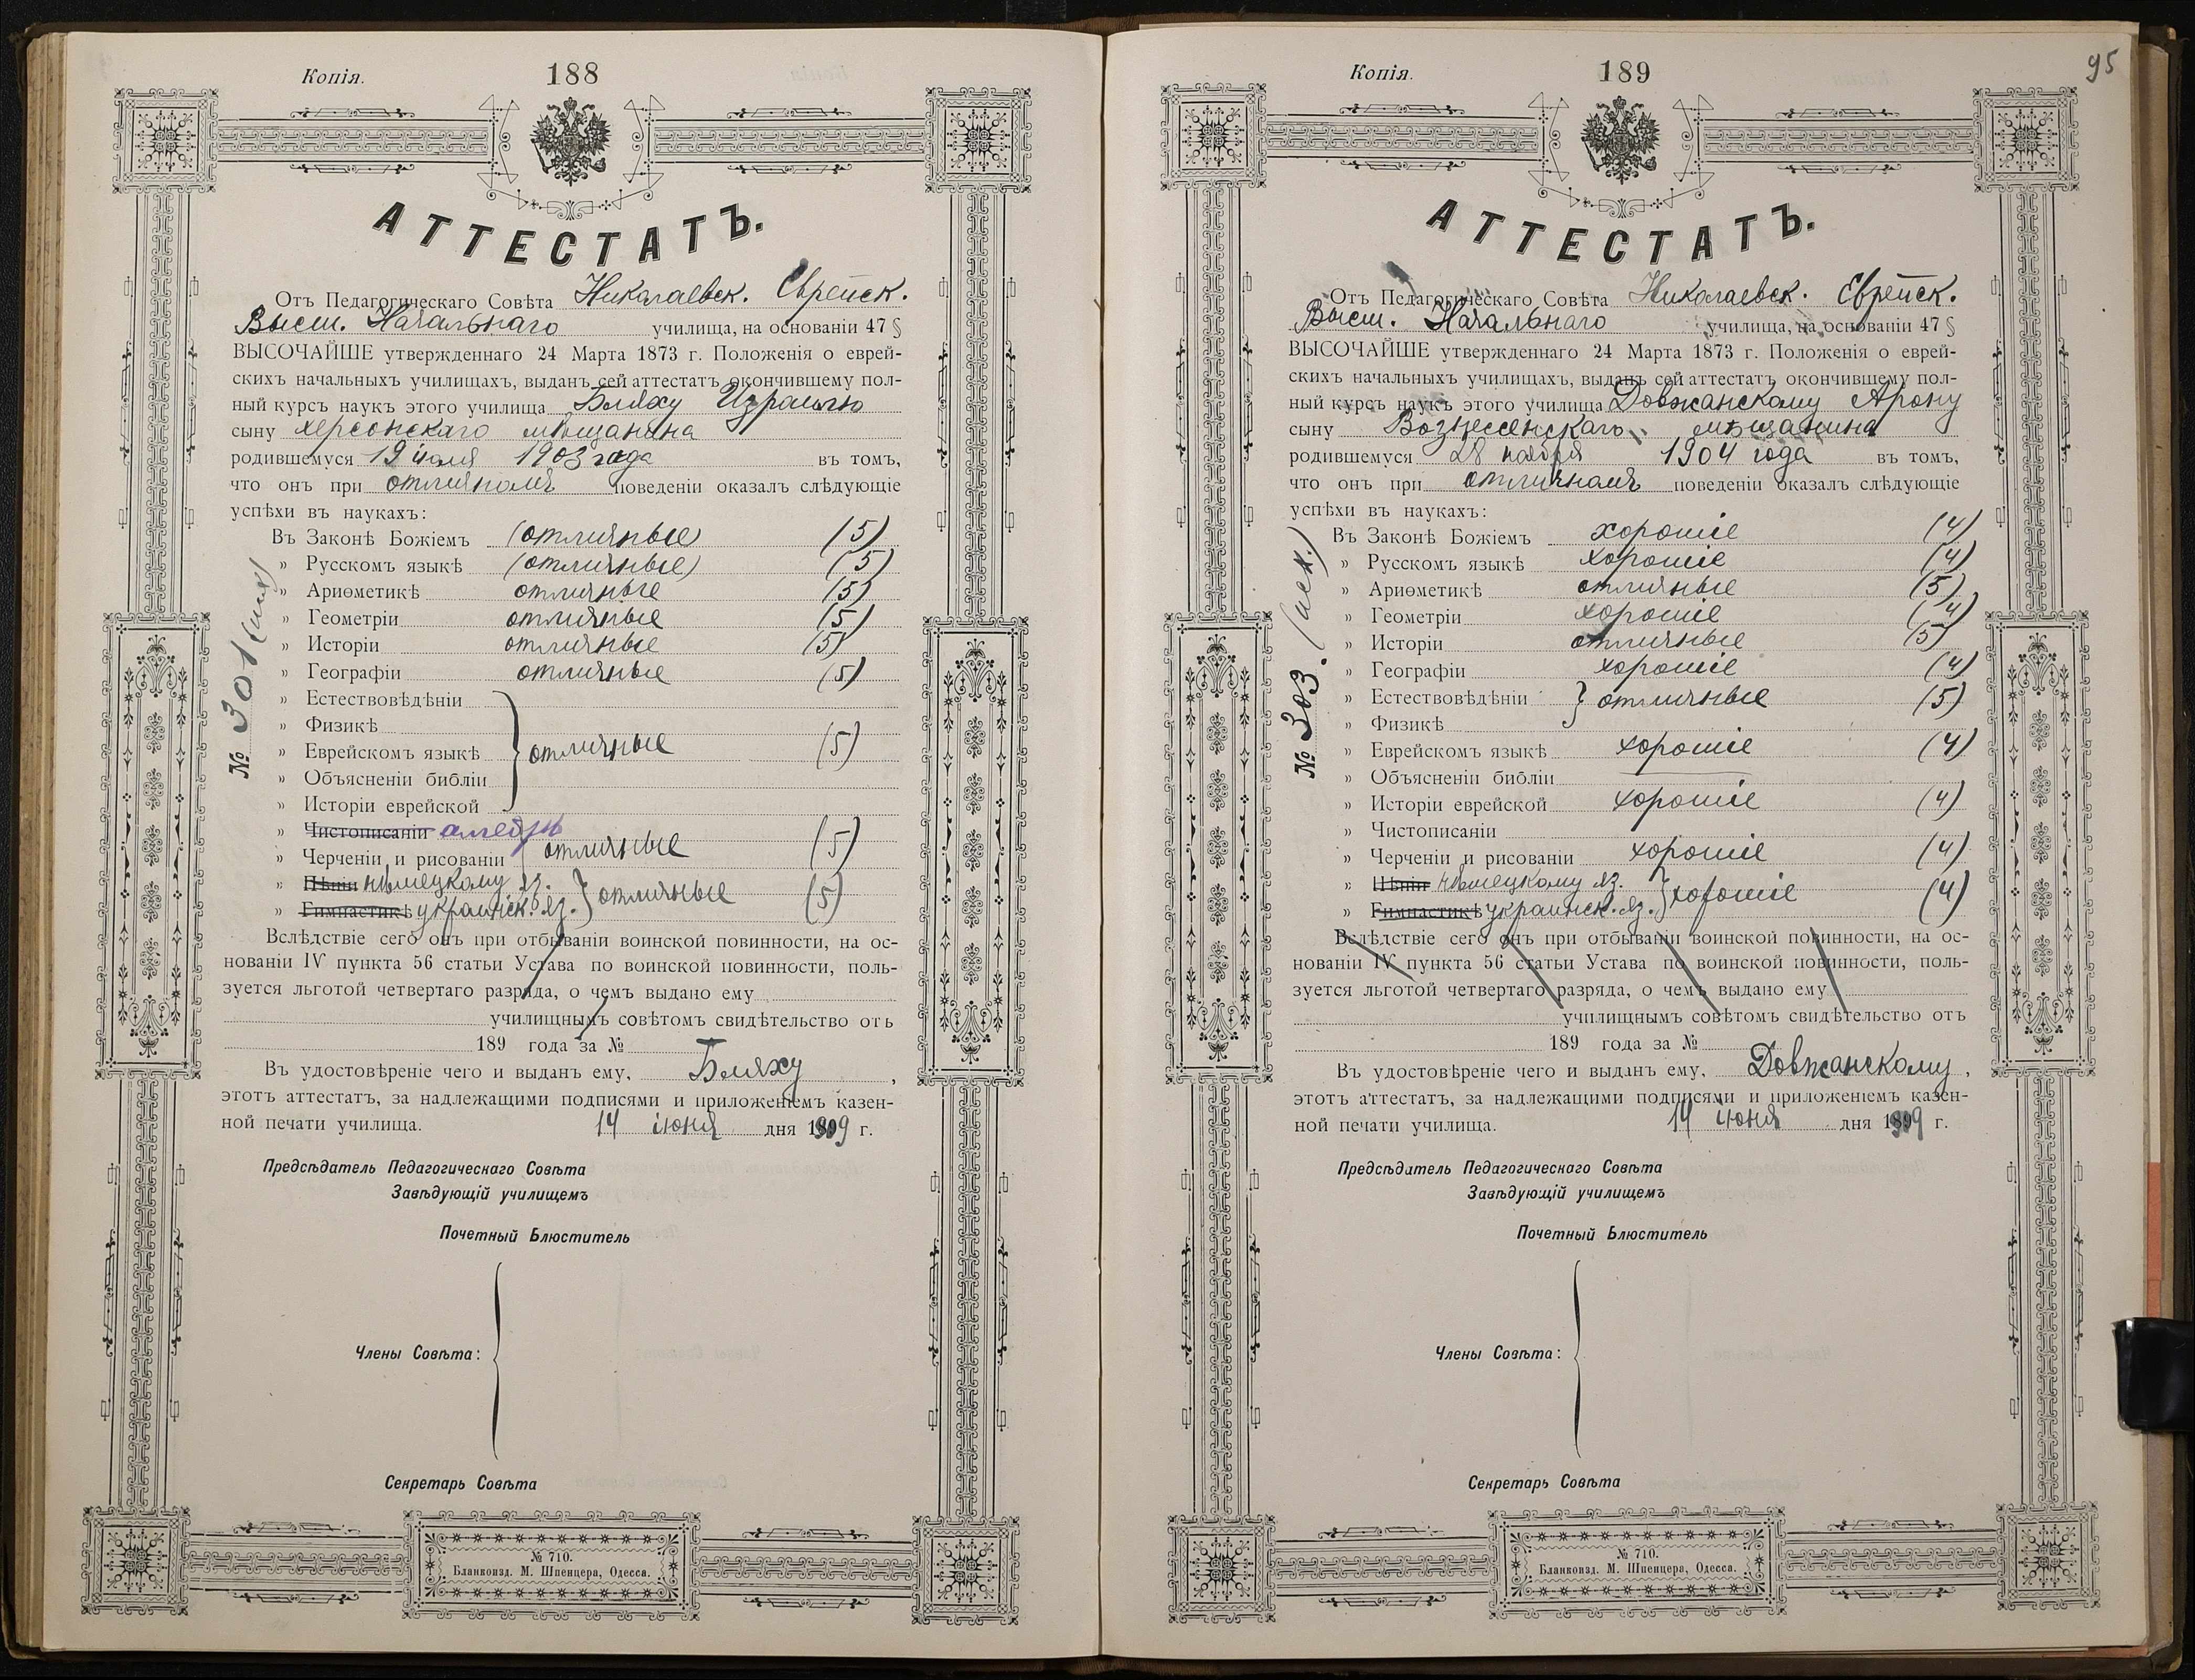 Копія.
188
АТТЕСТАТЪ.
Отъ Педагогическаго Совѣта Николаевск. Еврейск.
Высш. Начальнаго училища, на основаніи 47 §
ВЫСОЧАЙШЕ утвержденнаго 24 Марта 1873 г. Положенія о еврей-
скихъ начальныхъ училищахъ, выданъ сей аттестатъ окончившему пол-
ный курсъ наукъ этого училища Бляху Израилю
сыну херсонскаго мѣщанина
родившемуся 19 іюля 1903 года въ томъ,
что онъ при отличномъ поведеніи оказалъ слѣдующіе
успѣхи въ наукахъ:
Въ Законѣ Божіемъ (отличные) (5)
» Русскомъ языкѣ (отличные) (5)
» Ариѳметикѣ отличные (5)
» Геометріи отличные (5)
» Исторіи отличные (5)
» Географіи отличные (5)
» Естествовѣдѣніи
» Физикѣ
» Еврейскомъ языкѣ отличные (5)
» Объясненіи библіи
» Исторіи еврейской
» Чистописаніи алгебрѣ
» Черченіи и рисованіи отличные (5)
» Пѣніи нѣмецкому яз.
» Гимнастикѣ украинск. яз. отличные (5)
№ 301
Вслѣдствіе сего онъ при отбываніи воинской повинности, на ос-
нованіи IV пункта 56 статьи Устава по воинской повинности, поль-
зуется льготой четвертаго разряда, о чемъ выдано ему
училищнымъ совѣтомъ свидѣтельство отъ
189 года за №
Въ удостовѣреніе чего и выданъ ему, Бляху,
этотъ аттестатъ, за надлежащими подписями и приложеніемъ казен-
ной печати училища. 14 іюня дня 1919 г.
Предсѣдатель Педагогическаго Совѣта
Завѣдующій училищемъ
Почетный Блюститель
Члены Совѣта:
Секретарь Совѣта
№ 710.
Бланкоизд. М. Шпенцера, Одесса.
Копія.
189
95
АТТЕСТАТЪ.
Отъ Педагогическаго Совѣта Николаевск. Еврейск.
Высш. Начальнаго училища, на основаніи 47 §
ВЫСОЧАЙШЕ утвержденнаго 24 Марта 1873 г. Положенія о еврей-
скихъ начальныхъ училищахъ, выданъ сей аттестатъ окончившему пол-
ный курсъ наукъ этого училища Довжанскому Арону
сыну Вознесенскаго мѣщанина
родившемуся 28 ноября 1904 года въ томъ,
что онъ при отличномъ поведеніи оказалъ слѣдующіе
успѣхи въ наукахъ:
Въ Законѣ Божіемъ хорошіе (4)
» Русскомъ языкѣ хорошіе (4)
» Ариѳметикѣ отличные (5)
» Геометріи хорошіе (4)
» Исторіи отличные (5)
» Географіи хорошіе (4)
» Естествовѣдѣніи отличные (5)
» Физикѣ
» Еврейскомъ языкѣ хорошіе (4)
» Объясненіи библіи
» Исторіи еврейской хорошіе (4)
» Чистописаніи
» Черченіи и рисованіи хорошіе (4)
» Пѣніи нѣмецкому яз.
» Гимнастикѣ украинск. яз. хорошіе (4)
№ 303.
Вслѣдствіе сего онъ при отбываніи воинской повинности, на ос-
нованіи IV пункта 56 статьи Устава по воинской повинности, поль-
зуется льготой четвертаго разряда, о чемъ выдано ему
училищнымъ совѣтомъ свидѣтельство отъ
189 года за №
Въ удостовѣреніе чего и выданъ ему, Довжанскому,
этотъ аттестатъ, за надлежащими подписями и приложеніемъ казен-
ной печати училища. 14 іюня дня 1919 г.
Предсѣдатель Педагогическаго Совѣта
Завѣдующій училищемъ
Почетный Блюститель
Члены Совѣта:
Секретарь Совѣта
№ 710.
Бланкоизд. М. Шпенцера, Одесса.